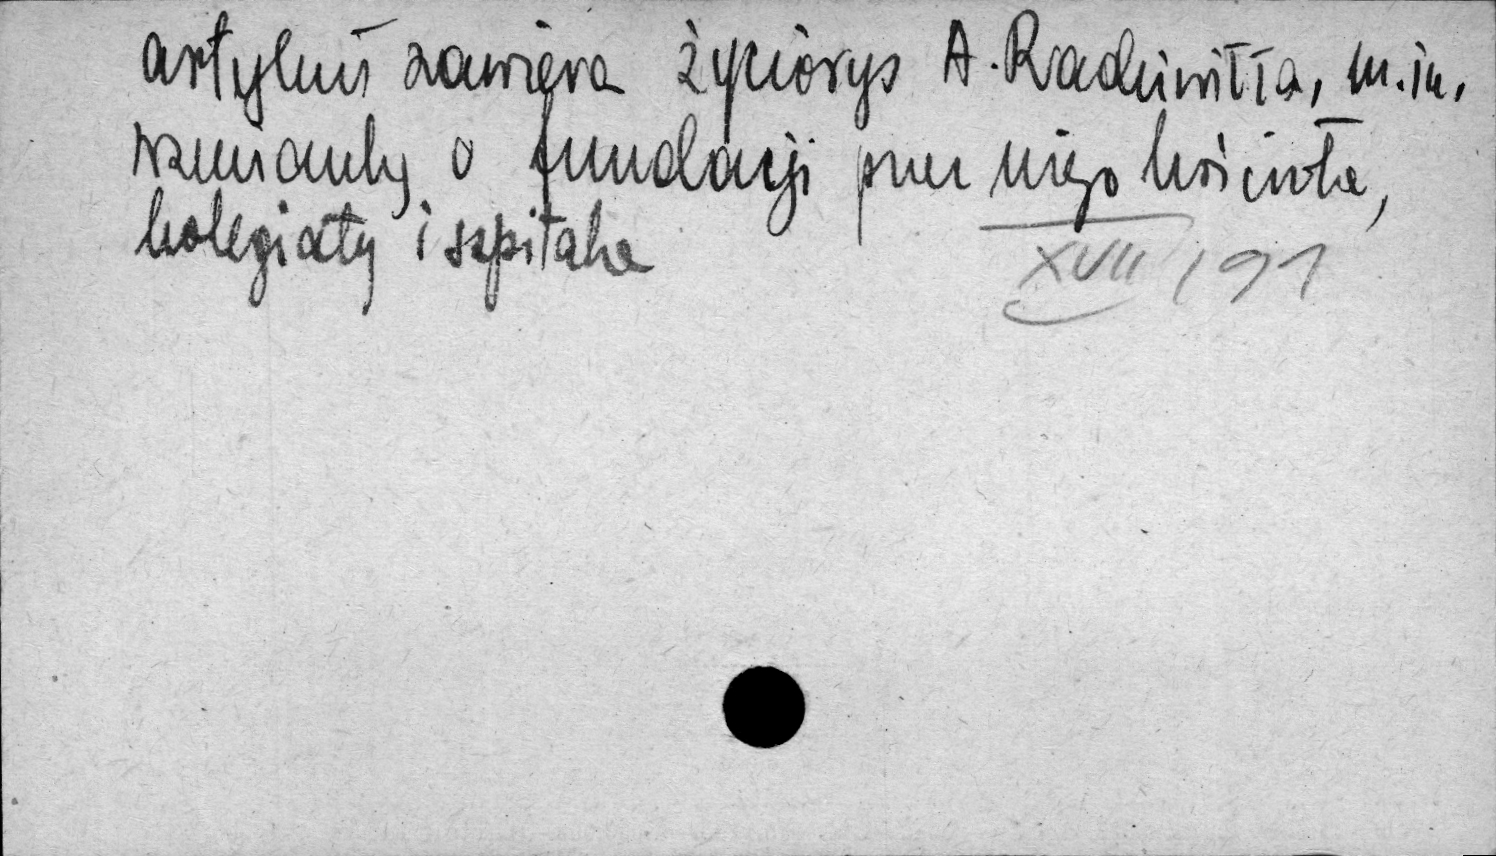 artykuł zawiera życiorys A. Radziwiłła, m.in.
wzmianky o fundacji przez niego kościoła,
kolegiaty i szpitala
XVII / 91